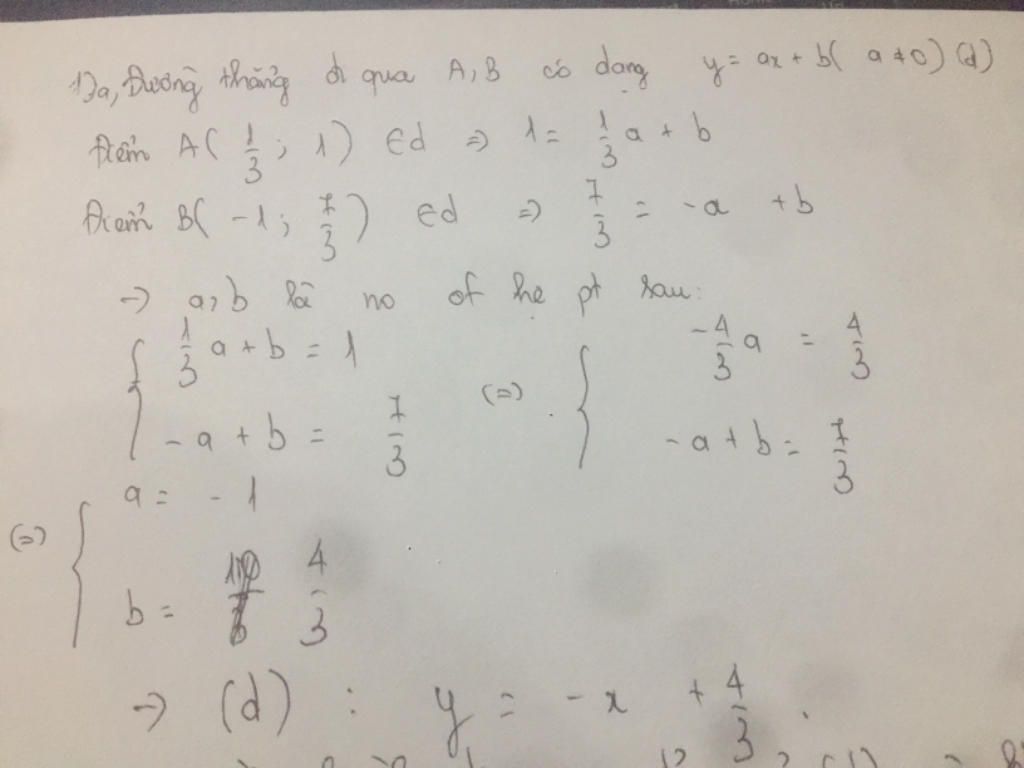 1) a, Đường thẳng đi qua A, B có dạng y = ax + b ( a ≠ 0) (d)
Điểm A( 1/3 ; 1 ) ∈ d => 1 = 1/3 a + b
Điểm B( -1 ; 7/3 ) ∈ d => 7/3 = -a + b
→ a, b là no of hệ pt sau:
{ 1/3 a + b = 1
-a + b = 7/3
(=) { -4/3 a = 4/3
-a + b = 7/3
(=) { a = -1
b = 4/3
→ (d) : y = -x + 4/3 .